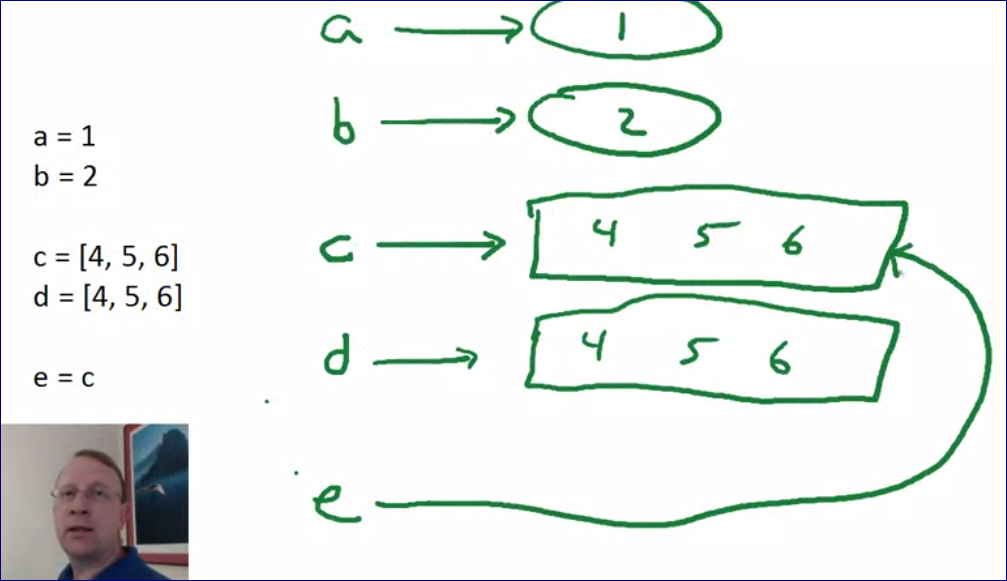 a = 1
b = 2
c = [4, 5, 6]
d = [4, 5, 6]
e = c
a 1
b 2
c 4 5 6
d 4 5 6
e